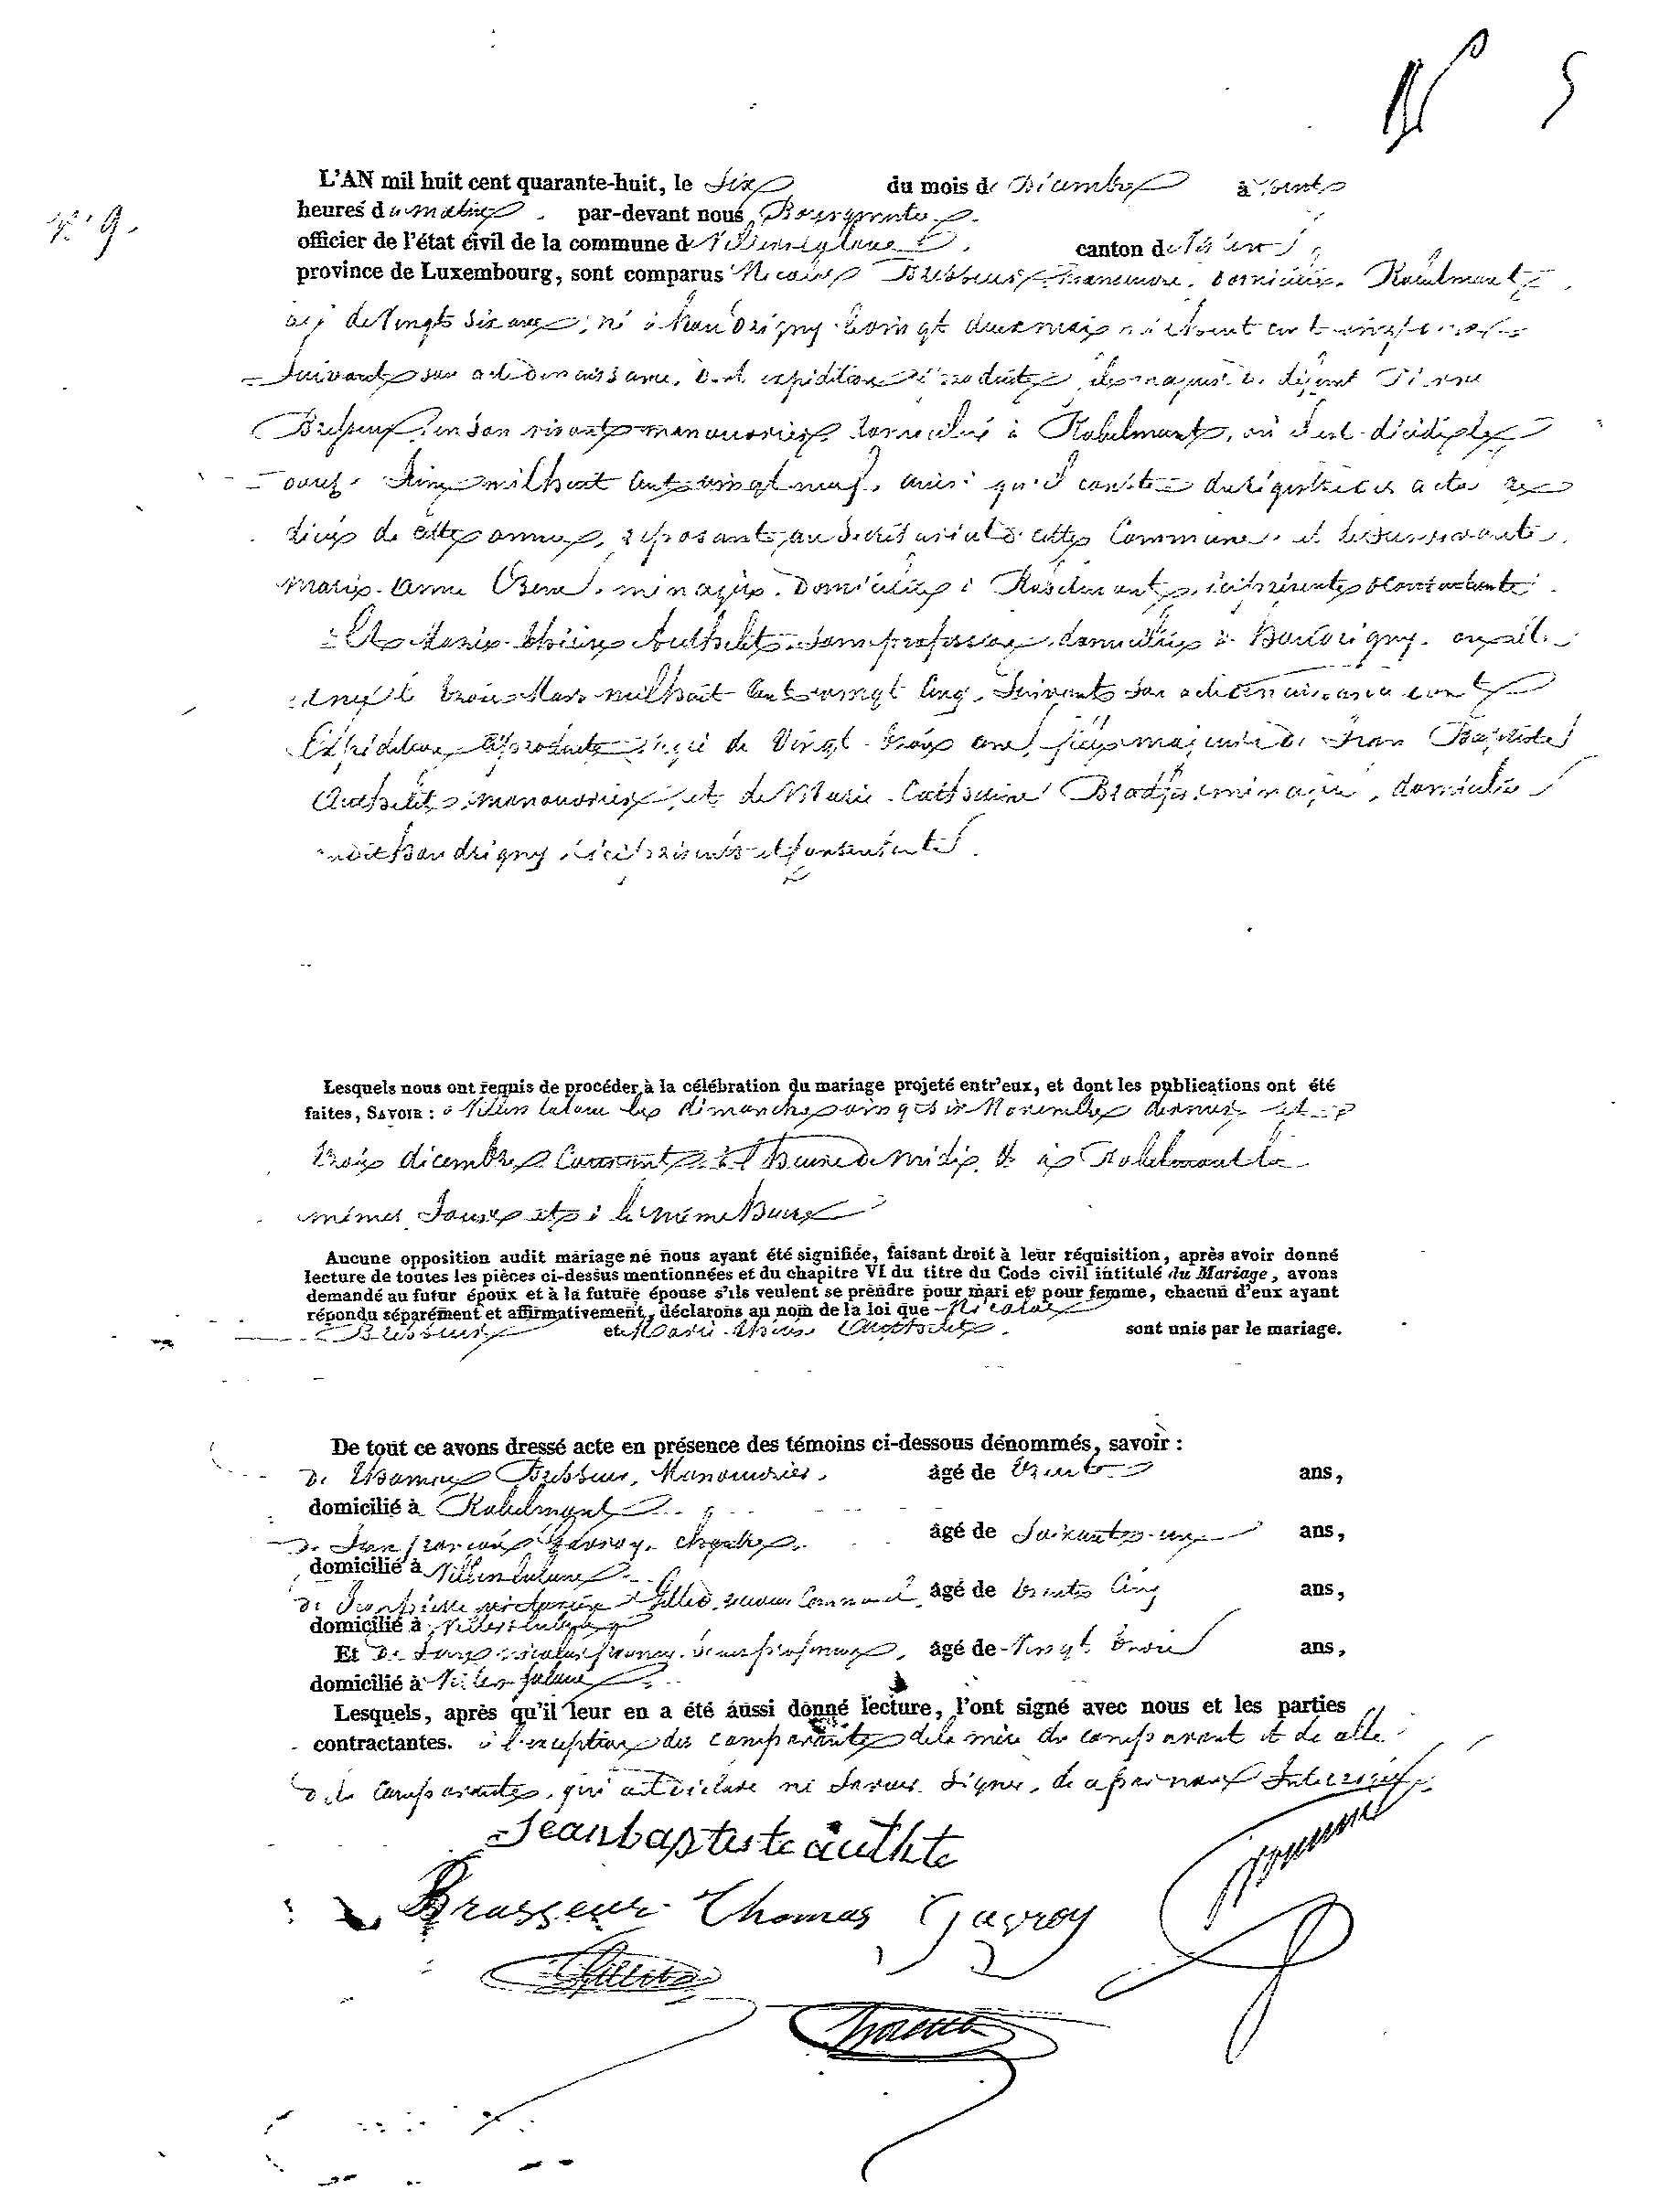 N° 5
N° 9.
L'AN mil huit cent quarante-huit, le six du mois de Décembre à
heures du matin par-devant nous
officier de l'état civil de la commune de canton de
province de Luxembourg, sont comparus Nicolas Brasseur manouvrier, domicilié Robelmont
âgé de Vingt six ans, né à handrigny le vingt deux mai mil huit cent vingt
Suivant son acte de naissance, dont expédition est produite, fils majeur de défunt Pierre
Brasseur, en son vivant manouvrier, domicilié à Robelmont, où il est décédé le
onze Juin mil huit cent vingt neuf, ainsi qu'il conste du registre des actes de
décès de cette année, reposant au Secrétariat de cette Commune, et de survivante
Marie Anne ménagère, Domiciliée à Robelmont, ici présente et consentante
Et Marie Thérèse Authelet sans profession, domiciliée à handrigny, où elle
est née le trois Mars mil huit cent vingt cinq, Suivant son acte de naissance dont
Expédition est produite, âgée de Vingt trois ans, fille majeure de Jean Baptiste
Authelet, manouvrier, et de Marie Catherine ménagère, domiciliés
audit handrigny, ici présents et consentants
Lesquels nous ont requis de procéder à la célébration du mariage projeté entr'eux, et dont les publications ont été
faites, SAVOIR : à Villers la loue les dimanches vingt six Novembre dernier et
trois décembre Courant à l'heure de midi, et à Robelmont les
mêmes Jours et à la même heure
Aucune opposition audit mariage ne nous ayant été signifiée, faisant droit à leur réquisition, après avoir donné
lecture de toutes les pièces ci-dessus mentionnées et du chapitre VI du titre du Code civil intitulé du Mariage, avons
demandé au futur époux et à la future épouse s'ils veulent se prendre pour mari et pour femme, chacun d'eux ayant
répondu séparément et affirmativement, déclarons au nom de la loi que Nicolas
Brasseur et Marie Thérèse Authelet sont unis par le mariage.
De tout ce avons dressé acte en présence des témoins ci-dessous dénommés, savoir :
De Thomas Brasseur, Manouvrier, âgé de trente ans,
domicilié à Robelmont
De Jean françois Gavroy, âgé de Soixante un ans,
domicilié à Villers la loue
De Jean pierre receveur Communal âgé de trente Cinq ans,
domicilié à Villers la loue
Et De Jean nicolas sans profession, âgé de Vingt trois ans,
domicilié à Villers la loue
Lesquels, après qu'il leur en a été aussi donné lecture, l'ont signé avec nous et les parties
contractantes. à l'exception des comparants de la mère du comparant et de celle
de la comparante, qui ont déclaré ne Savoir Signer, de ce par nous Interpellés
Jean baptiste authlte
Brasseur Thomas Gavroy